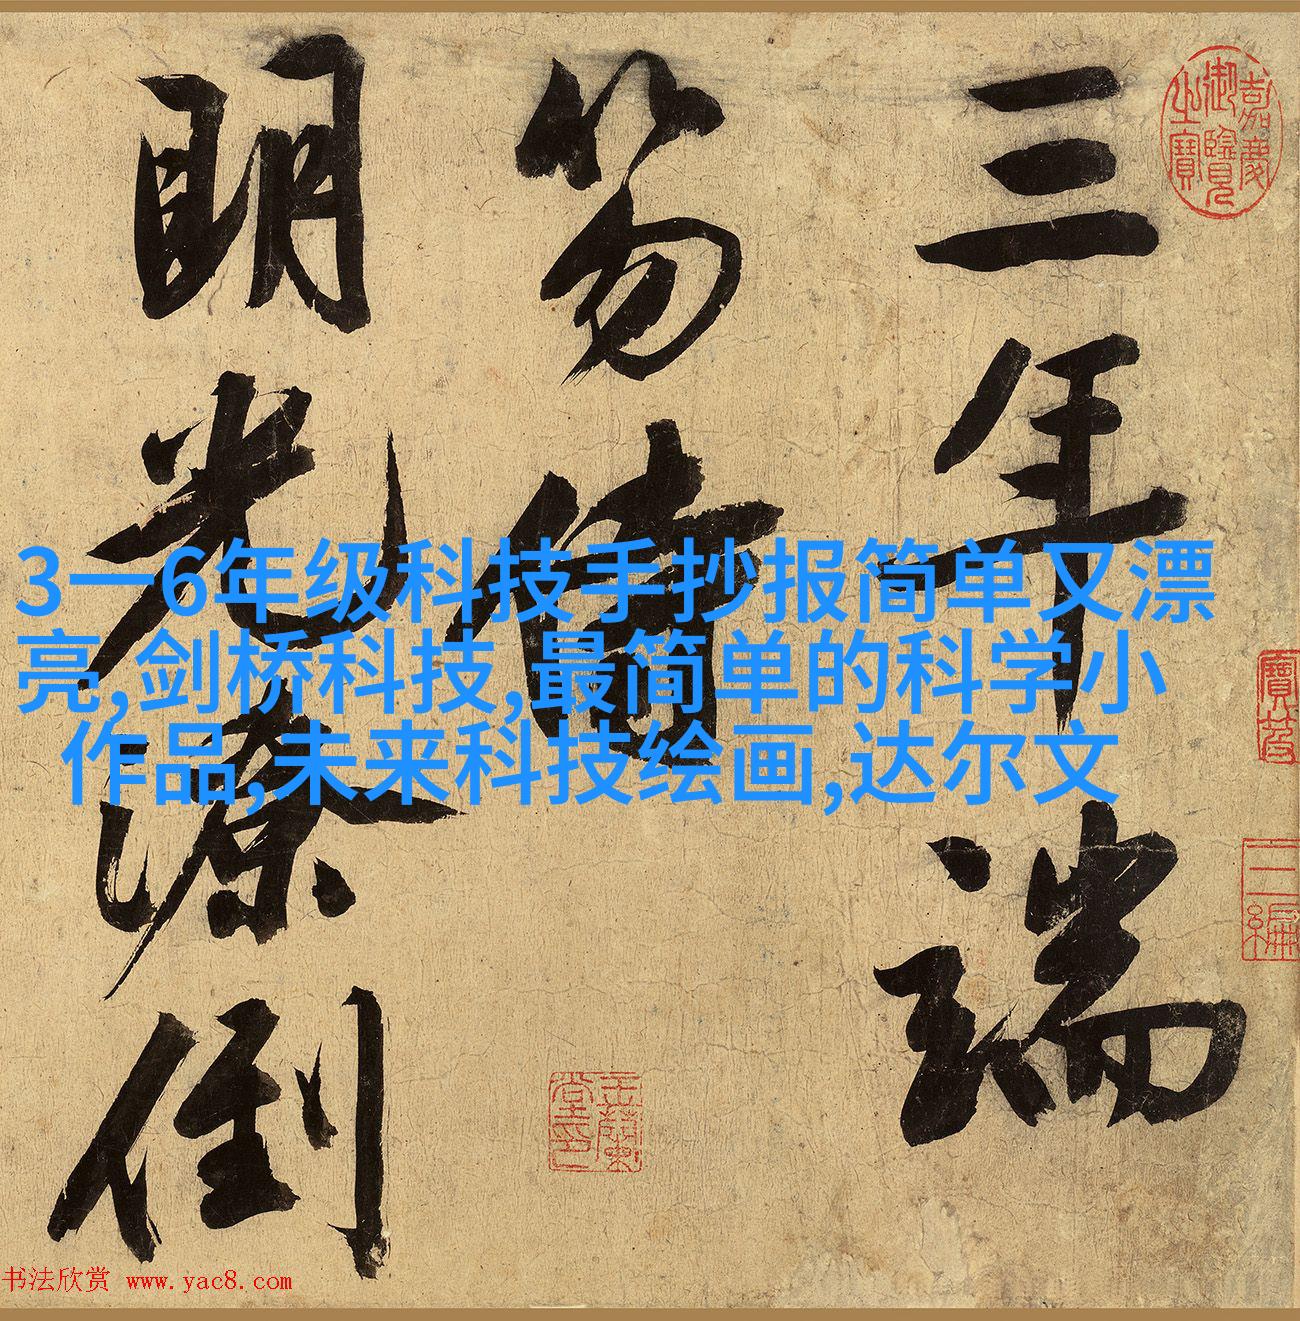 三年端
笏侍
明光潦倒
嘉慶
御覽
之寶
寶笈
三編
3—6年级科技手抄报简单又漂
亮,剑桥科技,最简单的科学小
作品,未来科技绘画,达尔文
书法欣赏 www.yac8.com